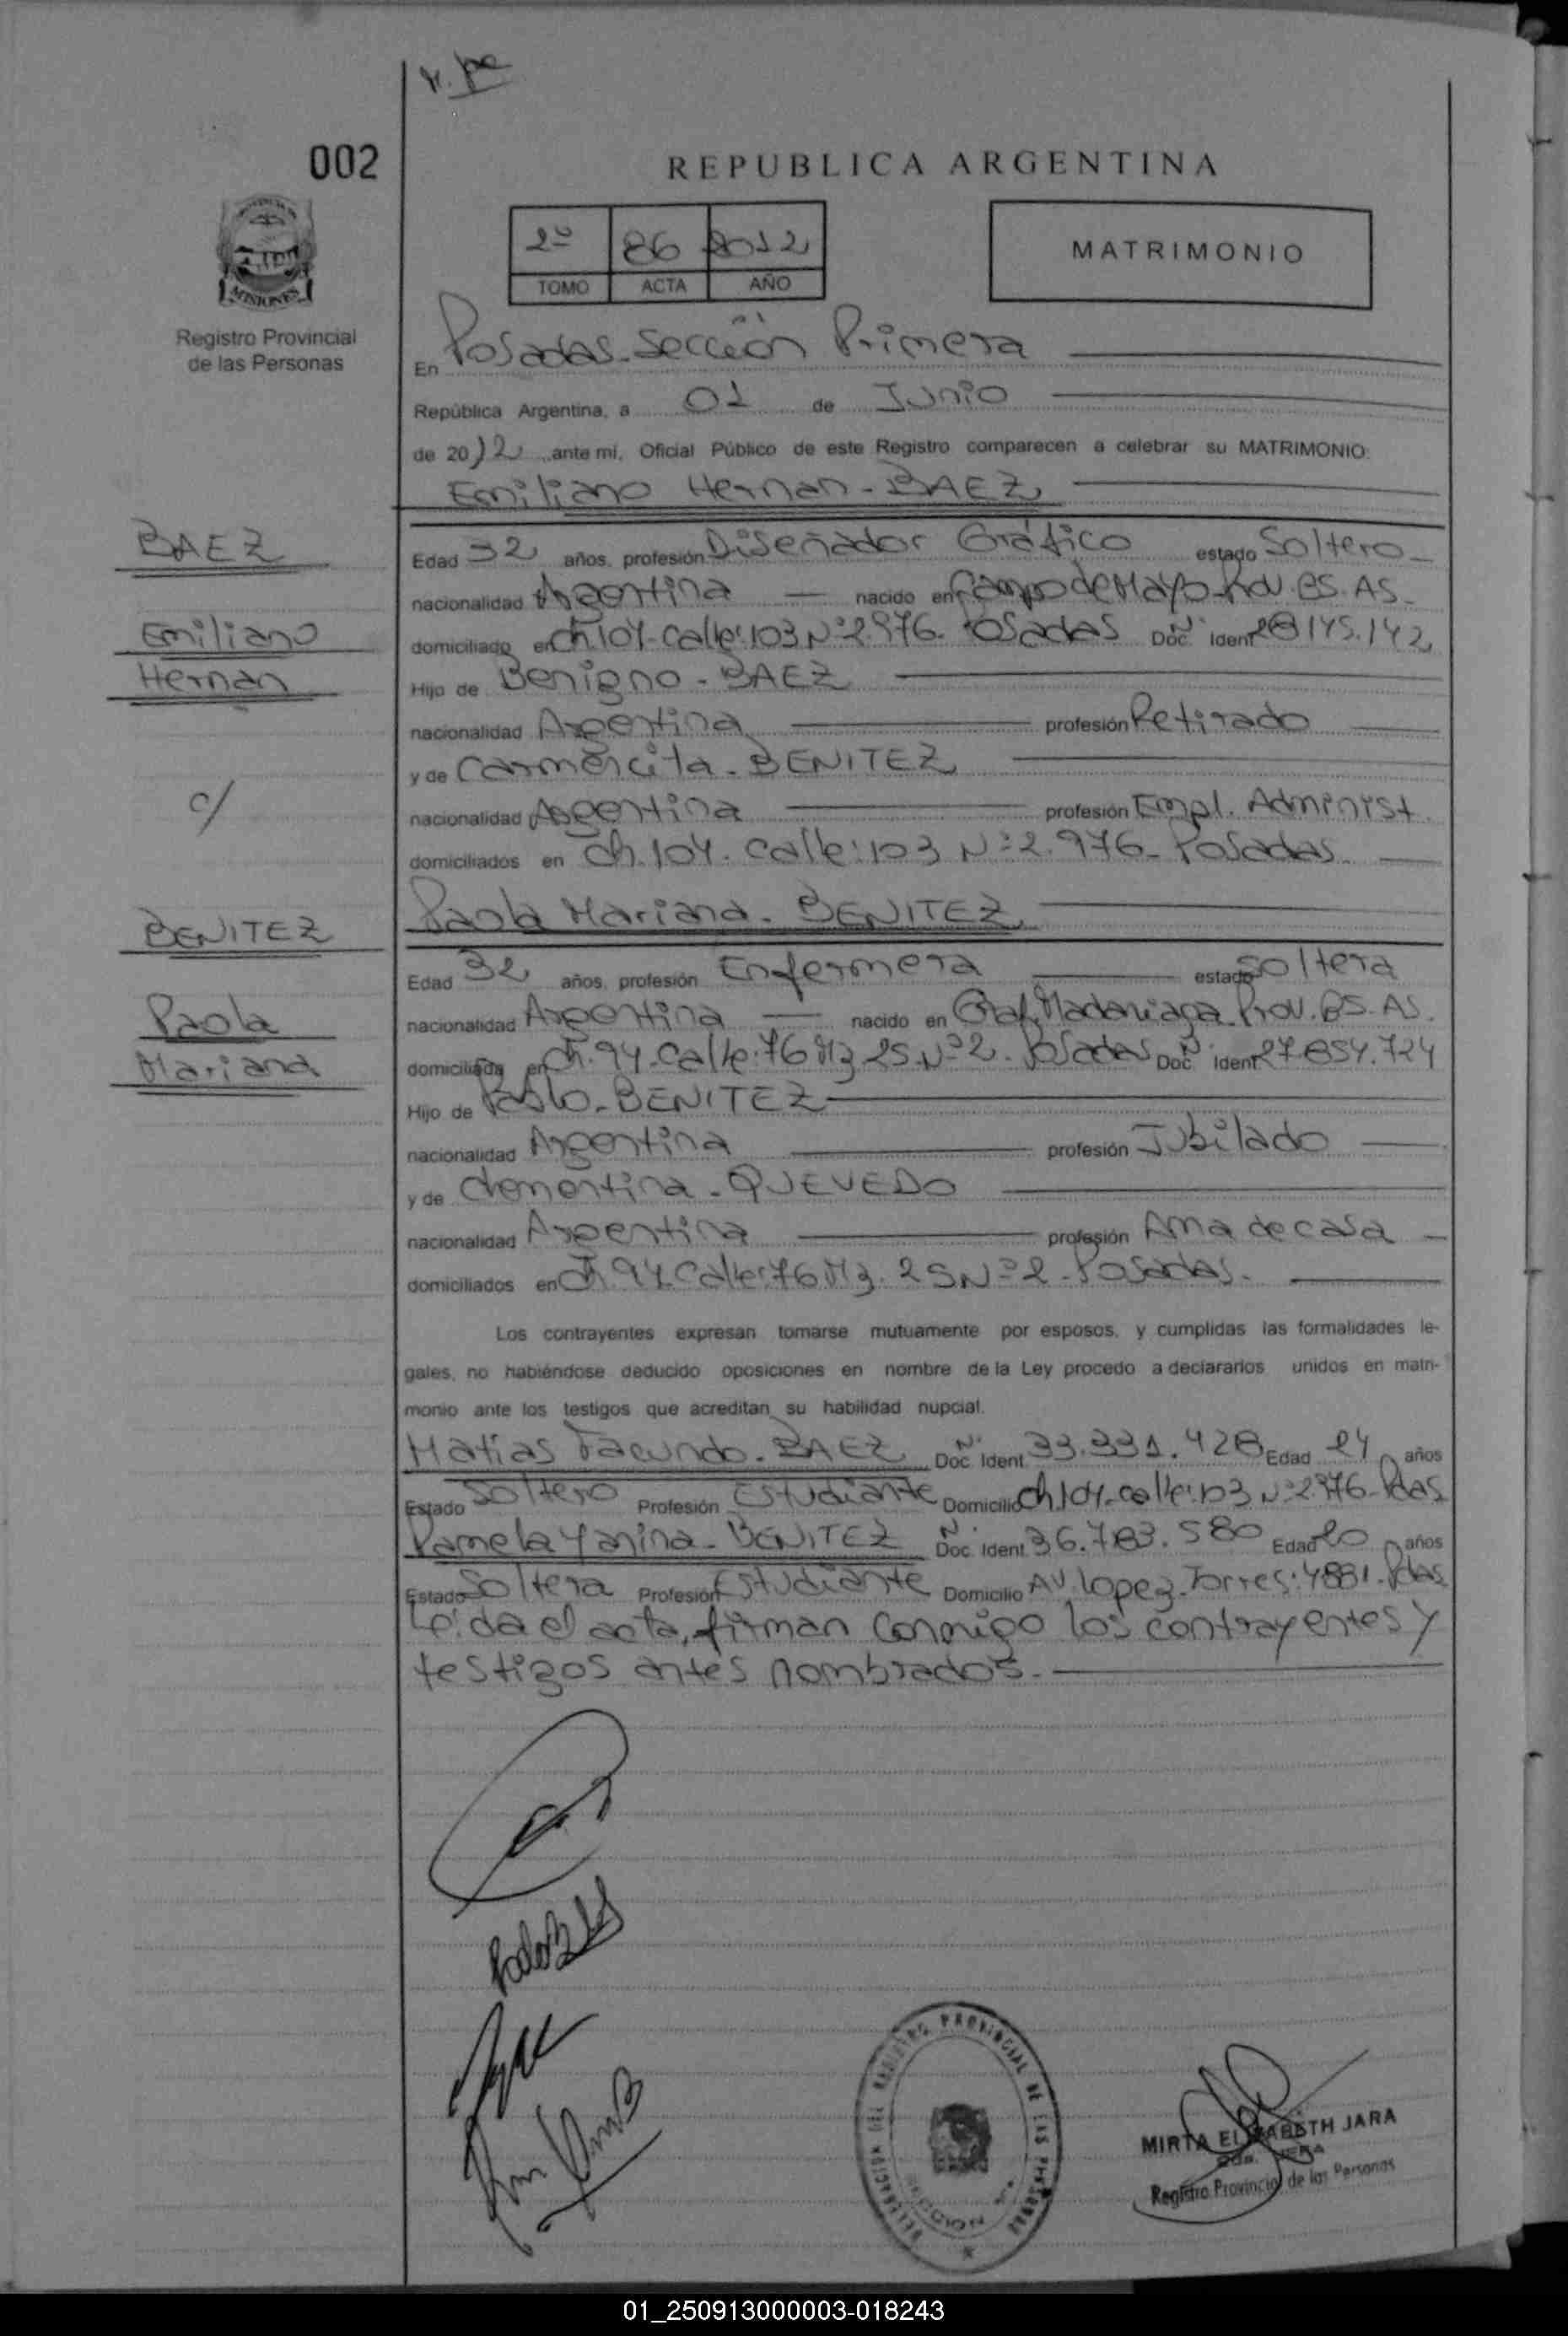 002
REPUBLICA ARGENTINA
PROVINCIA DE
MISIONES
Registro Provincial
de las Personas
2º 86 2012
TOMO ACTA AÑO
MATRIMONIO
En Posadas-Sección Primera
República Argentina, a 01 de Junio
de 2012 ante mi, Oficial Público de este Registro comparecen a celebrar su MATRIMONIO:
Emiliano Hernan-BAEZ
BAEZ
Emiliano
Hernan
c/
BENITEZ
Paola
Mariana
Edad 32 años, profesión Diseñador Gráfico estado Soltero-
nacionalidad Argentina nacido en Campo de Mayo-Prov.BS.AS-
domiciliado en Ch.104-Calle:103 Nº2.976- Posadas Nº Doc. Ident 28.145.142
Hijo de Benigno-BAEZ
nacionalidad Argentina profesión Retirado
y de Carmencita-BENITEZ
nacionalidad Argentina profesión Empl. Administ.
domiciliados en Ch.104-Calle:103 Nº2.976-Posadas
Paola Mariana-BENITEZ
Edad 32 años, profesión Enfermera estado Soltera
nacionalidad Argentina nacido en Gral. Madariaga-Prov.BS.AS.
domiciliada en Ch.94-Calle:76 Mz.25 Nº2-Posadas Nº Doc. Ident 27.854.724
Hijo de Pablo-BENITEZ
nacionalidad Argentina profesión Jubilado
y de Clementina-QUEVEDO
nacionalidad Argentina profesión Ama de casa -
domiciliados en Ch.94-Calle:76 Mz.25 Nº2-Posadas.
Los contrayentes expresan tomarse mutuamente por esposos, y cumplidas las formalidades le-
gales, no habiéndose deducido oposiciones en nombre de la Ley procedo a declararlos unidos en matri-
monio ante los testigos que acreditan su habilidad nupcial.
Matias Facundo-BAEZ Nº Doc. Ident. 33.331.428 Edad 24 años
Estado Soltero Profesión Estudiante Domicilio Ch.104-calle:103 Nº2976-Pdas
Pamela Yanina-BENITEZ Nº Doc. Ident. 36.783.580 Edad 20 años
Estado Soltera Profesión Estudiante Domicilio AV. Lopez-Torres:4881-Pdas
Leída el acta, firman conmigo los contrayentes y
testigos antes nombrados.-
DELEGACION DEL REGISTRO PROVINCIAL DE LAS PERSONAS
SECCION 1ra
MIRTA ELIZABETH JARA
Registro Provincial de las Personas
01_250913000003-018243